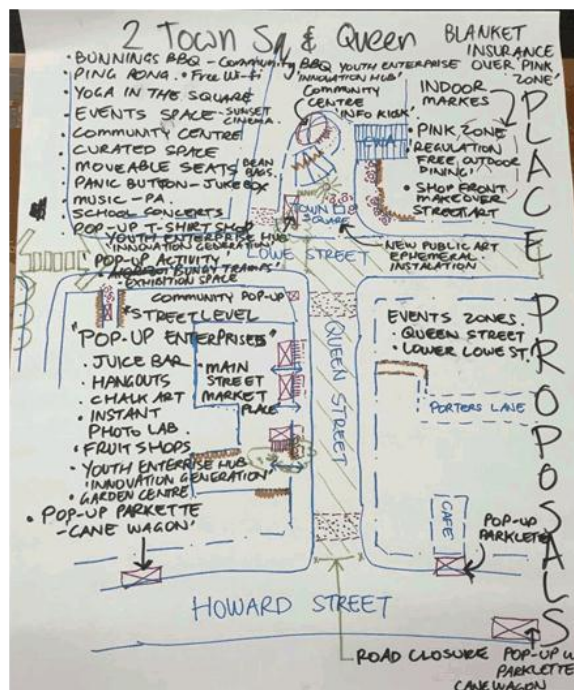 2 Town Sq & Queen
BLANKET
INSURANCE
OVER 'PINK
ZONE'
• BUNNINGS BBQ - Community BBQ
• PING PONG. • Free Wi-fi
• YOGA IN THE SQUARE
• EVENTS SPACE - SUNSET
CINEMA.
• COMMUNITY CENTRE
• CURATED SPACE
• MOVEABLE SEATS BEAN
BAGS.
• PANIC BUTTON - JUKEBOX
• MUSIC - PA.
• SCHOOL CONCERTS
• POP-UP T-SHIRT SHOP
YOUTH ENTERPRISE HUB
'INNOVATION GENERATION'
• POP-UP ACTIVITY
BUNGY TRAMPS
• EXHIBITION SPACE
YOUTH ENTERPRISE
'INNOVATION HUB'
COMMUNITY
CENTRE
'INFO KIOSK'
INDOOR
MARKES
• PINK ZONE
• REGULATION
FREE OUTDOOR
DINING'
• SHOP FRONT
MAKEOVER
STREET ART
TOWN
SQUARE
NEW PUBLIC ART
EPHEMERAL
INSTALATION
LOWE STREET
COMMUNITY POP-UP
* STREET LEVEL
"POP-UP ENTERPRISES"
• JUICE BAR
• HANGOUTS
• CHALK ART
• INSTANT
PHOTO LAB.
• FRUIT SHOPS
• YOUTH ENTERPRISE HUB
'INNOVATION GENERATION'
• GARDEN CENTRE
• POP-UP PARKETTE
- CANE WAGON'
• MAIN
STREET
MARKET
PLACE
QUEEN STREET
EVENTS ZONES.
• QUEEN STREET
• LOWER LOWE ST.
PORTERS LANE
CAFE
POP-UP
PARKLETTE
HOWARD STREET
ROAD CLOSURE
POP-UP
PARKLETTE
CANE WAGON
PLACE PROPOSALS